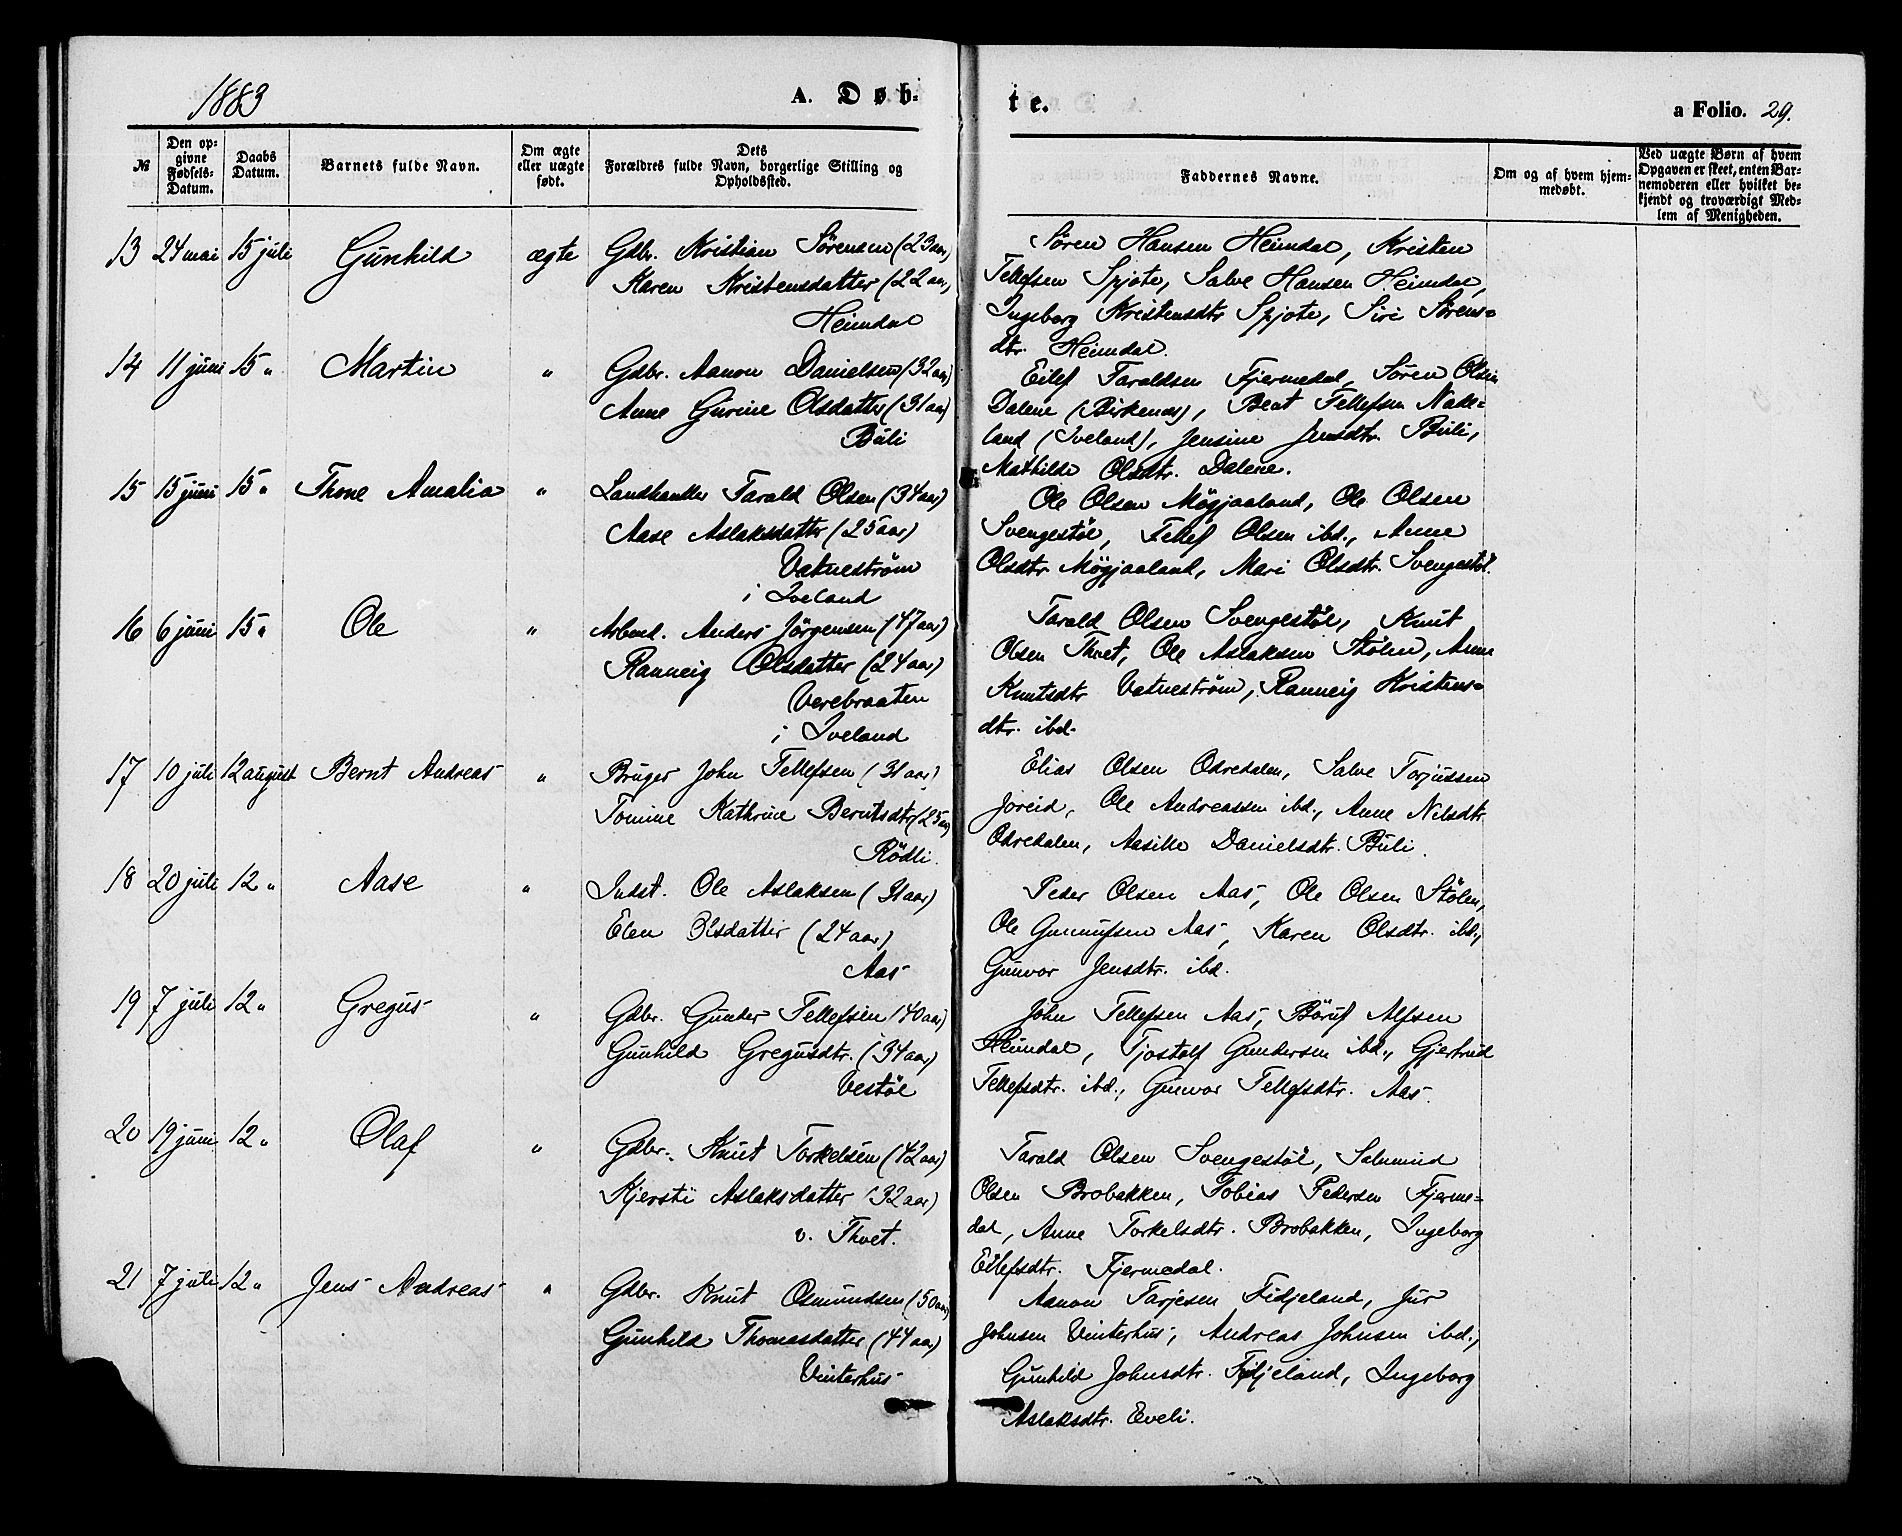 1883
A. Døb-
te.
a Folio. 29.
№
Den op-
givne
Fødsels-
Datum.
Daabs
Datum.
Barnets fulde Navn.
Om ægte
eller uægte
født.
Dets
Forældres fulde Navn, borgerlige Stilling og
Opholdssted.
Faddernes Navne.
Om og af hvem hjem-
medøbt.
Ved uægte Børn af hvem
Opgaven er skeet, enten Bar-
nemoderen eller hvilket be-
kjendt og troværdigt Med-
lem af Menigheden.
13 24 mai 15 juli Gunhild ægte Gdbr. Kristian Sørensen (23 aar)
Karen Kristensdatter (22 aar)
Heimdal
Søren Hansen Heimdal, Kristen
Tellefsen Spjote, Salve Hansen Heimdal,
Ingeborg Kristensdtr Spjote, Siri Sørens-
dtr. Heimdal.
14 11 juni 15 " Martin " Gdbr. Aanon Danielsen (32 aar)
Anne Gurine Olsdatter (31 aar)
Buli
Eilef Taraldsen Fjermedal, Søren Olsen
Dalene (Birkenes), Bent Tellefsen Nate-
land (Iveland), Jensine Jensdtr. Buli,
Mathilde Olsdtr. Dalene.
15 15 juni 15 " Thone Amalia " Landhandler Tarald Olsen (34 aar)
Aase Aslaksdatter (25 aar)
Vatneström
i Iveland
Ole Olsen Møgjaaland, Ole Olsen
Svengestöl, Tellef Olsen ibd., Anne
Olsdtr Møgjaaland, Mari Olsdtr. Svengestöl.
16 6 juni 15 " Ole " Arbeid. Anders Jörgensen (47 aar)
Ranneig Olsdatter (24 aar)
Verebraaten
i Iveland
Tarald Olsen Svengestöl, Knut
Olsen Thvet, Ole Aslaksen Stölen, Anne
Knutsdtr Vatneström, Ranneig Kristens-
dtr. ibd.
17 10 juli 12 august Bernt Andreas " Bruger John Tellefsen (31 aar)
Tomine Kathrine Berntsdtr (25 aar)
Rödli.
Elias Olsen Odredalen, Salve Torjussen
Joreid, Ole Andreassen ibd., Anne Nilsdtr
Odredalen, Aasille Danielsdtr. Buli.
18 20 juli 12 " Aase " Indst. Ole Aslaksen (31 aar)
Elen Olsdatter (24 aar)
Aas
Peder Olsen Aas, Ole Olsen Stölen,
Ole Gunnufsen Aas, Karen Olsdtr. ibd.,
Gunvor Jensdtr. ibd.
19 7 juli 12 " Gregus " Gdbr. Gunder Tellefsen (40 aar)
Gunhild Gregusdtr. (34 aar)
Vestöl
John Tellefsen Aas, Böruf Alfsen
Heimdal, Tjostolf Gundersen ibd., Gjertrud
Tellefsdtr. ibd., Gunvor Tellefsdtr. Aas.
20 19 juni 12 " Olaf " Gdbr. Knut Torkelsen (42 aar)
Kjersti Aslaksdatter (32 aar)
v. Thvet.
Tarald Olsen Svengestöl, Salmund
Olsen Brobakken, Tobias Pedersen Fjerme-
dal, Anne Torkelsdtr. Brobakken, Ingeborg
Eilefsdtr. Fjermedal.
21 7 juli 12 " Jens Andreas " Gdbr. Knut Osmundsen (50 aar)
Gunhild Thomasdatter (44 aar)
Vinterhus
Aanon Tarjesen Fidjeland, Jur
Johnsen Vinterhus, Andreas Johnsen ibd.,
Gunhild Johnsdtr. Fidjeland, Ingeborg
Aslaksdtr. Eveli.